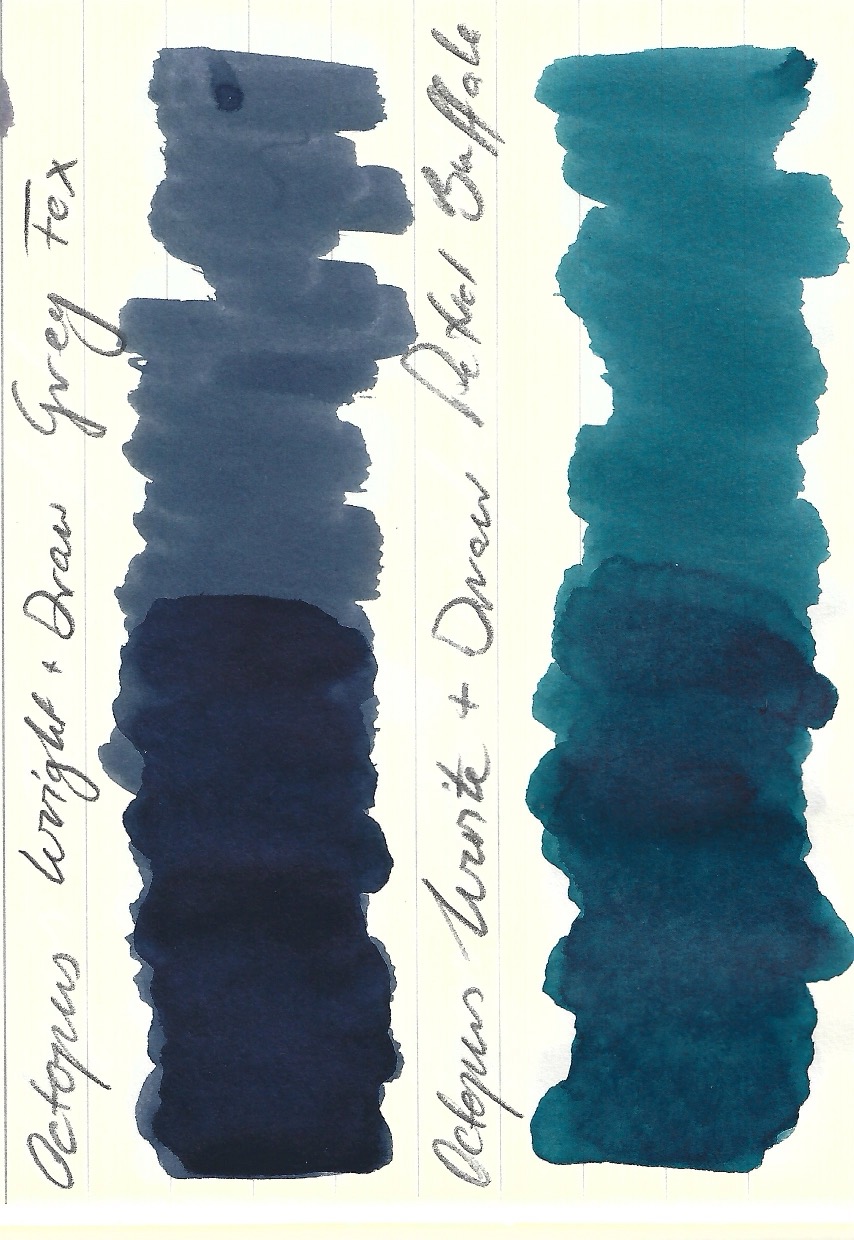 Octopus Wright + Draw Grey Fox
Octopus Write + Draw Petrol Buffalo